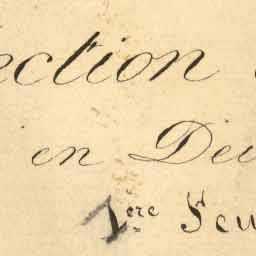 ection
en Deu
1ere Feu